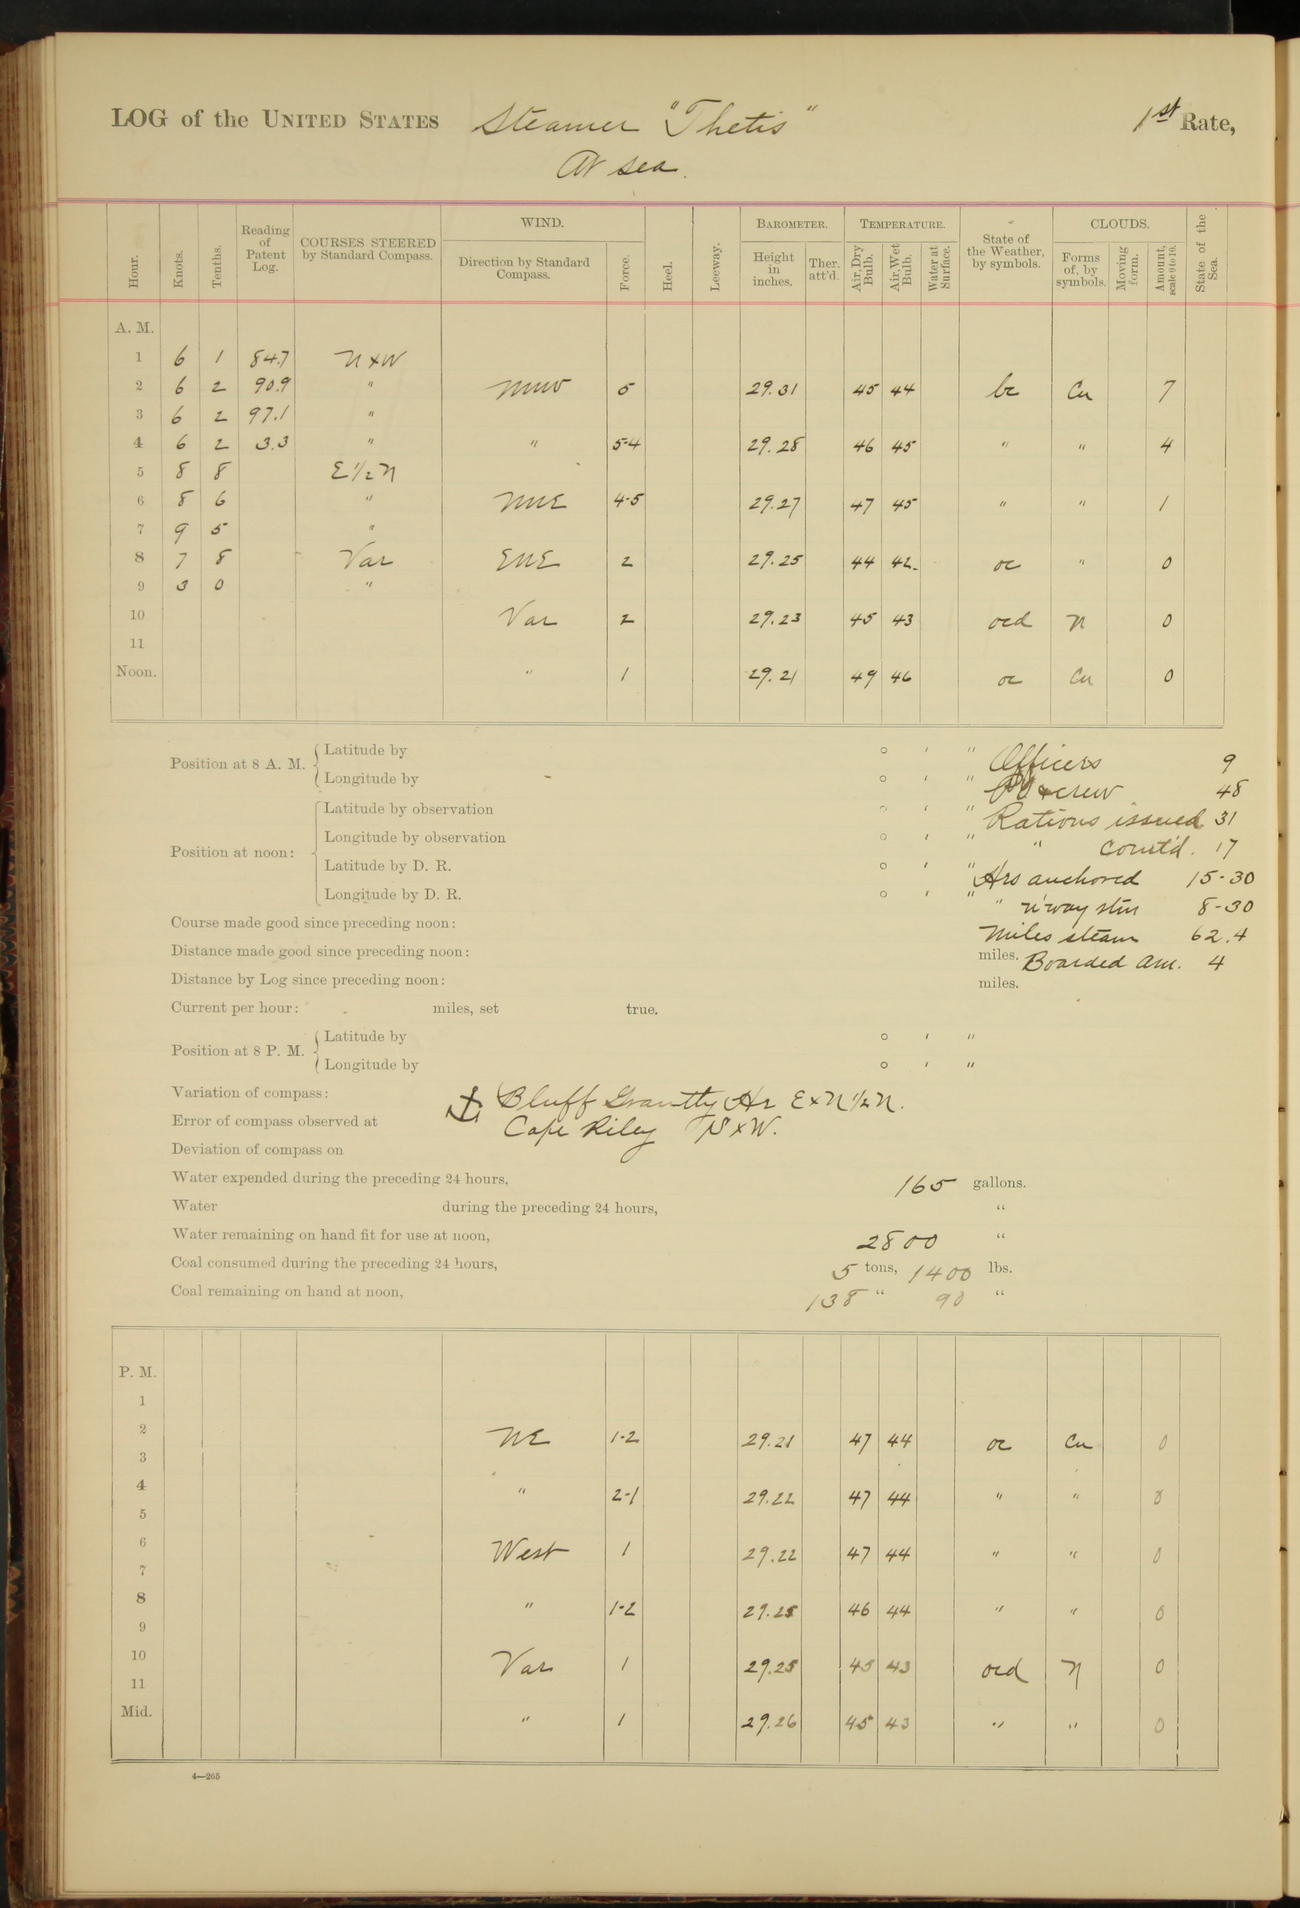 LOG of the UNITED STATES Steamer "Thetis" 1st Rate,
At sea.
Hour. Knots. Tenths. Reading of Patent Log. COURSES STEERED by Standard Compass. WIND. Direction by Standard Compass. Force. Heel. Leeway. BAROMETER. Height in inches. Ther. att'd. TEMPERATURE. Air, Dry Bulb. Air, Wet Bulb. Water at Surface. State of the Weather, by symbols. CLOUDS. Forms of, by symbols. Moving form. Amount, scale 0 to 10. State of the Sea.
A. M.
1 6 1 84.7 NxW
2 6 2 90.9 " NNW 5 29.31 45 44 bc Cu 7
3 6 2 97.1 "
4 6 2 3.3 " " 5-4 29.28 46 45 " " 4
5 8 8 E½N
6 8 6 " NNE 4-5 29.27 47 45 " " 1
7 9 5 "
8 7 8 Var ENE 2 29.25 44 42 oc " 0
9 3 0 "
10 Var 2 29.23 45 43 ocd N 0
11
Noon. " 1 29.21 49 46 oc Cu 0
Position at 8 A. M. Latitude by ° ' " Officers 9
Longitude by ° ' " & crew 48
Position at noon: Latitude by observation ° ' " Rations issued 31
Longitude by observation ° ' " " Comt'd. 17
Latitude by D. R. ° ' " Hrs anchored 15-30
Longitude by D. R. ° ' " " u'way stm 8-30
Course made good since preceding noon: Miles steam 62.4
Distance made good since preceding noon: miles. Boarded Am. 4
Distance by Log since preceding noon: miles.
Current per hour: miles, set true.
Position at 8 P. M. Latitude by ° ' "
Longitude by ° ' "
Variation of compass: Bluff Grantly Hr ExN½N.
Error of compass observed at Cape Riley SxW.
Deviation of compass on
Water expended during the preceding 24 hours, 165 gallons.
Water during the preceding 24 hours, "
Water remaining on hand fit for use at noon, 2800 "
Coal consumed during the preceding 24 hours, 5 tons, 1400 lbs.
Coal remaining on hand at noon, 138 " 90 "
P. M.
1
2 NE 1-2 29.21 47 44 oc Cu 0
3
4 " 2-1 29.22 47 44 " " 0
5
6 West 1 29.22 47 44 " " 0
7
8 " 1-2 29.25 46 44 " " 0
9
10 Var 1 29.25 45 43 ocd N 0
11
Mid. " 1 29.26 45 43 " " 0
4—265